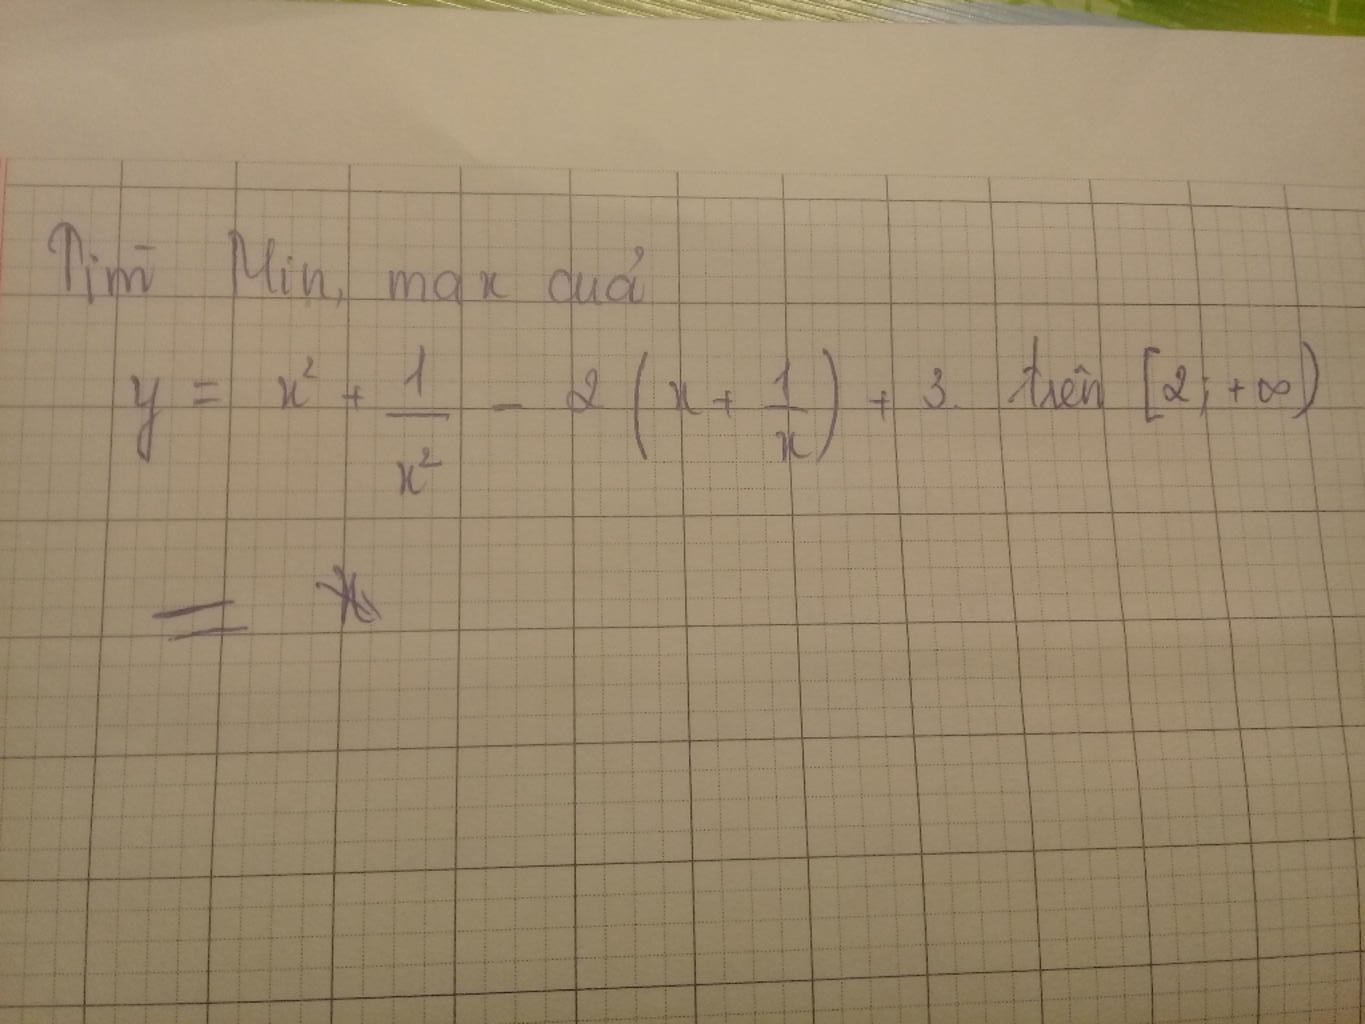 Tìm Min, max quả
y = x² + 1/x² - 2(x + 1/x) + 3. trên [2; +∞)
= x